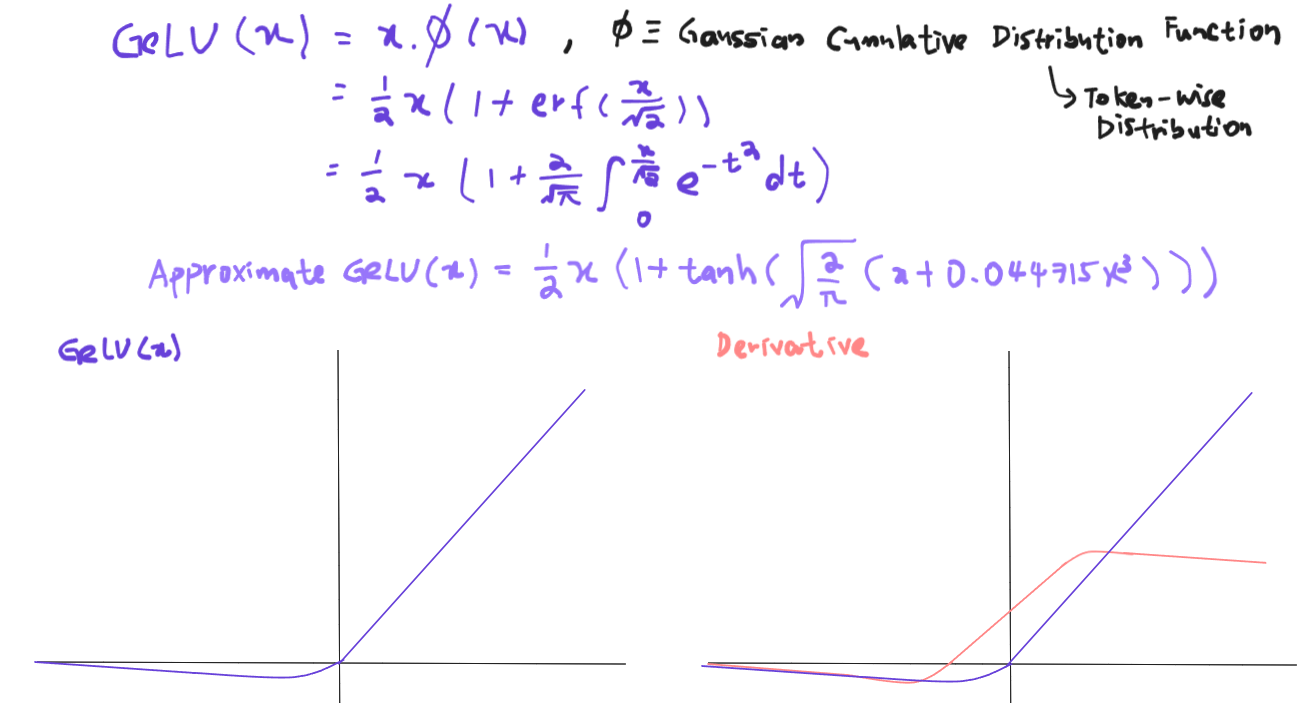 GeLU(x) = x.ϕ(x) , ϕ ≡ Gaussian Cumulative Distribution Function
↳ Token-wise
Distribution
= 1/2 x (1 + erf(x/√2))
= 1/2 x (1 + 2/√π ∫₀^(x/√2) e^(-t²) dt)
Approximate GeLU(x) = 1/2 x (1 + tanh(√(2/π) (x + 0.044715x³)))
GeLU(x)
Derivative